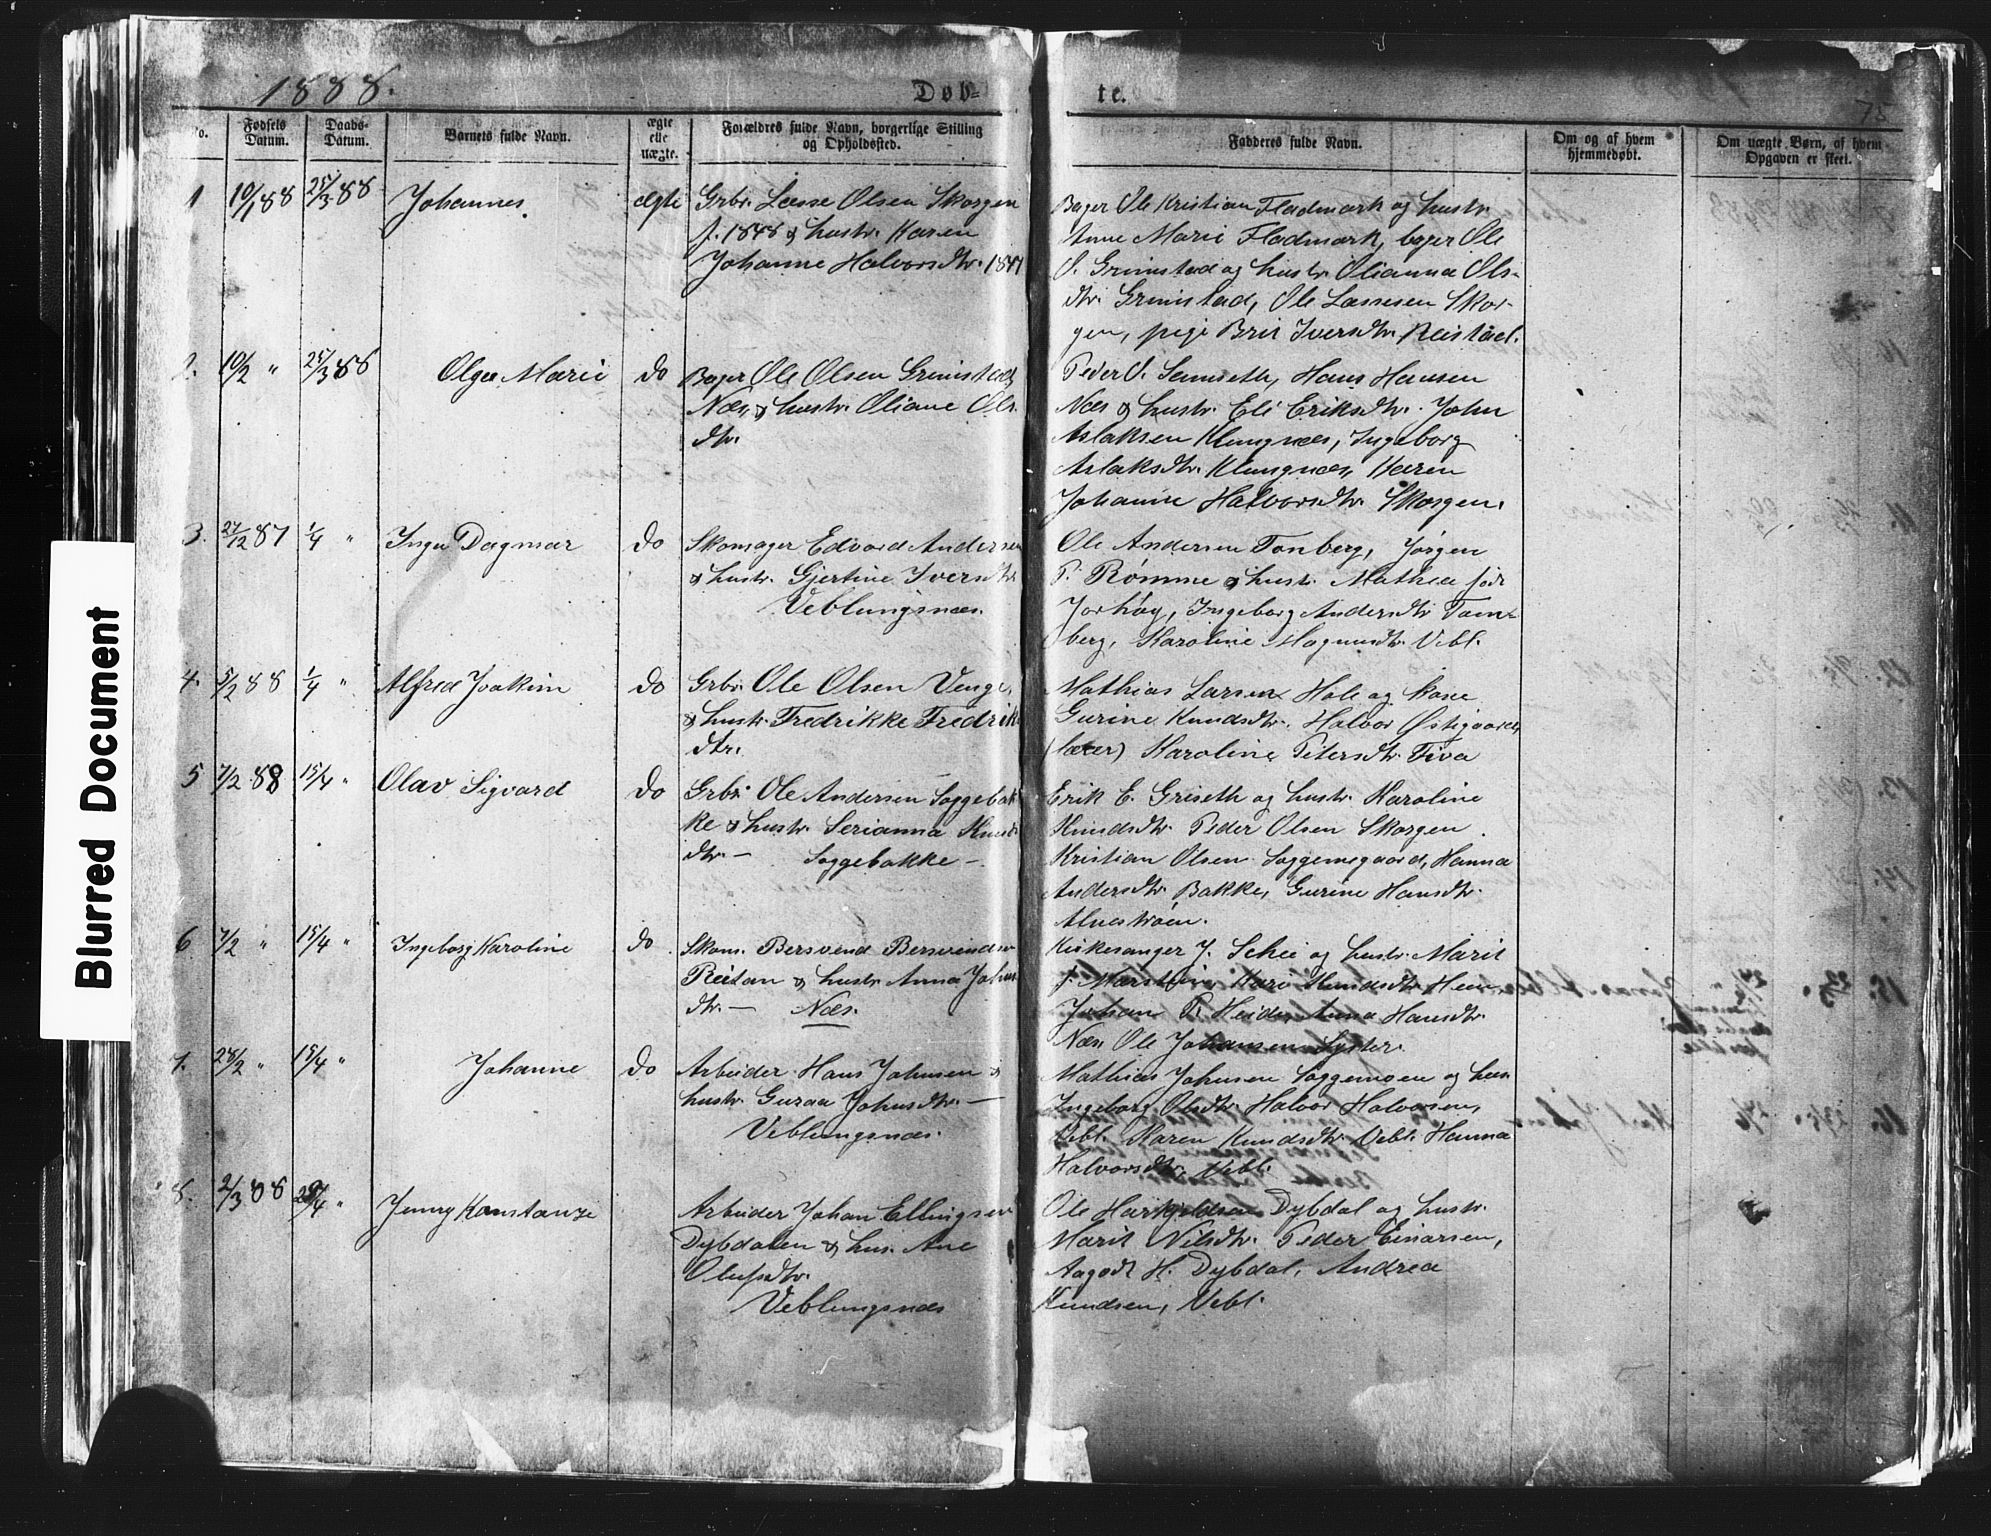 1888.
Døb-
te.
75
No.
Fødsels Datum.
Daabs-Datum.
Barnets fulde Navn.
ægte elle uægte.
Forældres fulde Navn, borgerlige Stilling og Opholdssted.
Fadderes fulde Navn.
Om og af hvem hjemmedøbt.
Om uægte Børn, af hvem Opgaven er skeet.
1 10/1 88 25/3 88 Johannes. ægte
Grbr. Lasse Olsen Skorgen
f. 1848 & hustr. Karen
Johanne Halvorsdtr. 1847
Bager Ole Kristian Fladmark og hustr.
Anne Marie Fladmark, bager Ole
O. Grimstad og hustr. Olianna Ols-
dtr. Grimstad, Ole Lassesen Skor-
gen, pige Brit Iversdtr. Reistad.
2. 10/2 " 25/3 88 Olga Marie do
Bager Ole Olsen Grimstad,
Næs, & hustr. Oliane Ols.
dtr.
Peder O. Semseth, Hans Hansen
Næs & hustr. Eli Eriksdtr. John
Aslaksen Klungnæs, Ingeborg
Aslaksdtr. Klungnæs, Karen
Johanne Halvorsdtr. Skorgen.
3. 27/12 87 1/4 " Inga Dagmar do
Skomager Edvard Andersen
& hustr. Gjertine Iversdtr.
Veblungsnæs.
Ole Andersen Tonberg, Jørgen
P. Rømme & hustr. Mathea født
Jorhøy, Ingeborg Andersdtr Tom-
berg, Karoline Magnusdtr. Vebl.
4. 5/2 88 1/4 " Alfred Joakim do
Grbr. Ole Olsen Venge,
& hustr. Fredrikke Fredrik
dtr.
Mathias Larsen Hole og kone
Gurine Knudsdtr. Halvor Østigaard,
(lærer) Karoline Petersdtr. Fiva
5 7/2 88 15/4 " Olav Sigvard do
Grbr. Ole Andersen Soggebak
ke & hustr. Serianna Knuds
dtr. – Soggebakke –
Erik E. Griseth og hustr. Karoline
Knudsdtr. Peder Olsen Skorgen.
Kristian Olsen Soggemegaard, Hanna
Andersdtr. Bakke, Gurine Hansdtr.
Alnestrøen.
6 7/2 " 15/4 " Ingeborg Karoline do
Skom. Bersvend Bersvendsen
Reitan & hustr. Anna Johns
dtr. – Næs.
Kirkesanger J. Schei og hustr. Marit
f. Marstein, Kari Knudsdtr. Hen,
Johan P. Heide, Anna Hansdtr.
Næs. Ole Johansen Syster.
7. 28/2 " 15/4 " Johanne do
Arbeider Hans Johnsen &
hustr. Guraa Johnsdtr. –
Veblungsnæs.
Mathias Johnsen Soggemoen og hus.
Ingeborg Olsdtr. Halvor Halvorsen,
Vebl. Karen Knudsdtr. Vebl. Hanna
Halvorsdtr. Vebl.
8. 2/3 88 29/4 " Jenny Konstanze
Arbeider Johan Ellingsen
Dybdalen & hus. Ane
Olufsdtr.
Veblungsnæs
Ole Dybdal og hustr.
Marit Nilsdtr. Peder Einarsen,
Aagodt H. Dybdal, Andrea
Knudsen, Vebl.
Blurred Document